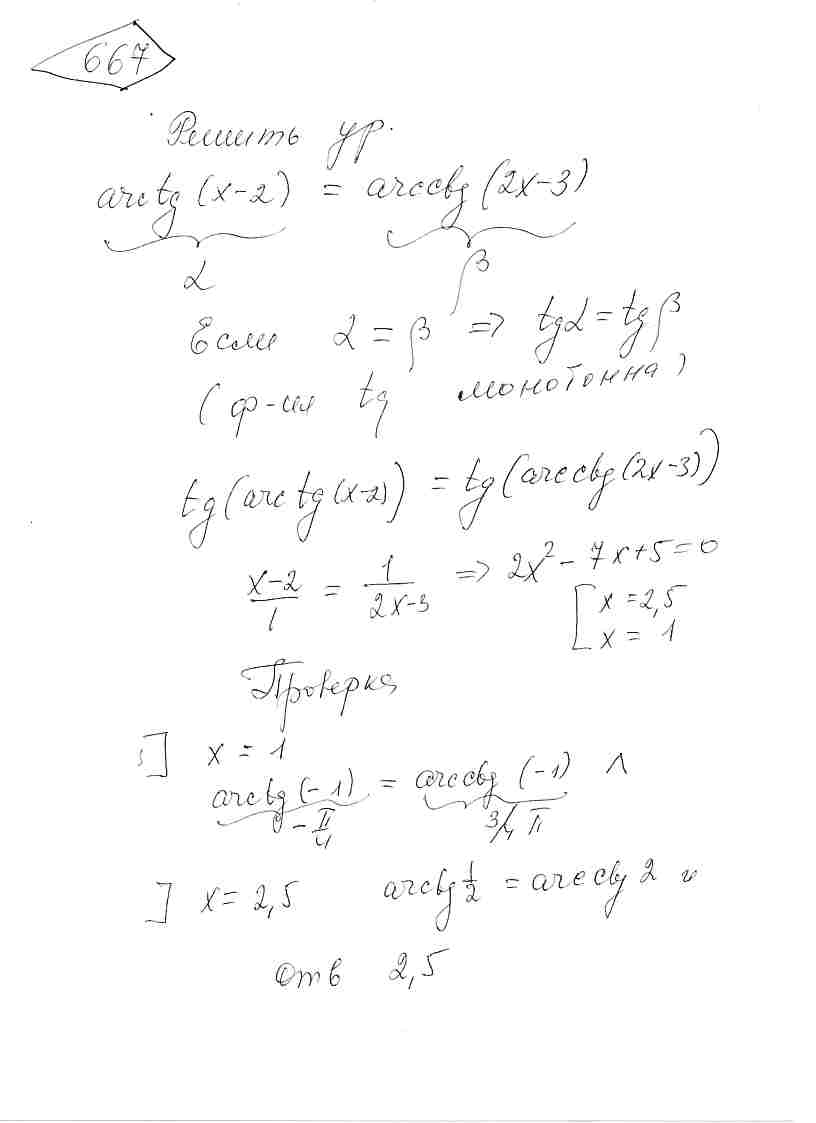 667
Решить ур.
arctg (x-2) = arcctg (2x-3)
α β
Если α = β => tgα = tgβ
(ф-ия tg монотонна)
tg(arctg(x-2)) = tg(arcctg(2x-3))
x-2/1 = 1/2x-3 => 2x² - 7x+5=0
[ x = 2,5
x = 1
Проверка
] x = 1
arctg (-1) = arcctg (-1) Л
-π/4 3/4 π
] x = 2,5 arctg 1/2 = arcctg 2 и
Отв 2,5